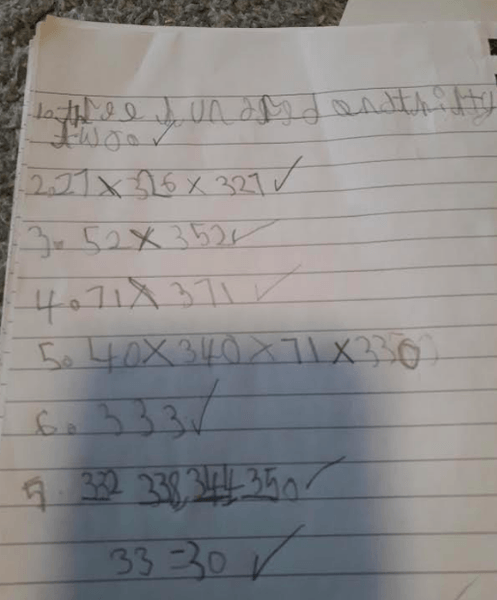 1. three hundred and thirty
two. ✓
2. 27 × 326 × 327 ✓
3. 52 × 352 ✓
4. 71 × 371 ✓
5. 40 × 340 × 71 × 330
6. 333 ✓
7. 332 338, 344 350 ✓
33 - 30 ✓